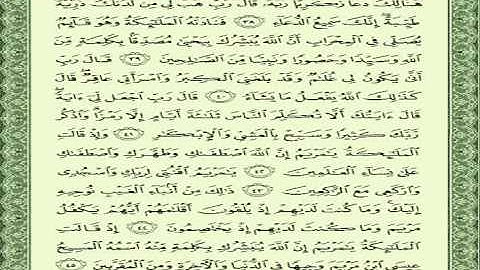 هُنَالِكَ دَعَا زَكَرِيَّا رَبَّهُۥ قَالَ رَبِّ هَبْ لِى مِن لَّدُنكَ ذُرِّيَّةً
طَيِّبَةً إِنَّكَ سَمِيعُ ٱلدُّعَآءِ ٣٨ فَنَادَتْهُ ٱلْمَلَٰٓئِكَةُ وَهُوَ قَآئِمٌ
يُصَلِّى فِى ٱلْمِحْرَابِ أَنَّ ٱللَّهَ يُبَشِّرُكَ بِيَحْيَىٰ مُصَدِّقًۢا بِكَلِمَةٍ مِّنَ
ٱللَّهِ وَسَيِّدًا وَحَصُورًا وَنَبِيًّا مِّنَ ٱلصَّٰلِحِينَ ٣٩ قَالَ رَبِّ
أَنَّىٰ يَكُونُ لِى غُلَٰمٌ وَقَدْ بَلَغَنِىَ ٱلْكِبَرُ وَٱمْرَأَتِى عَاقِرٌ قَالَ
كَذَٰلِكَ ٱللَّهُ يَفْعَلُ مَا يَشَآءُ ٤٠ قَالَ رَبِّ ٱجْعَل لِّىٓ ءَايَةً
قَالَ ءَايَتُكَ أَلَّا تُكَلِّمَ ٱلنَّاسَ ثَلَٰثَةَ أَيَّامٍ إِلَّا رَمْزًا وَٱذْكُر
رَّبَّكَ كَثِيرًا وَسَبِّحْ بِٱلْعَشِىِّ وَٱلْإِبْكَٰرِ ٤١ وَإِذْ قَالَتِ
ٱلْمَلَٰٓئِكَةُ يَٰمَرْيَمُ إِنَّ ٱللَّهَ ٱصْطَفَىٰكِ وَطَهَّرَكِ وَٱصْطَفَىٰكِ
عَلَىٰ نِسَآءِ ٱلْعَٰلَمِينَ ٤٢ يَٰمَرْيَمُ ٱقْنُتِى لِرَبِّكِ وَٱسْجُدِى
وَٱرْكَعِى مَعَ ٱلرَّٰكِعِينَ ٤٣ ذَٰلِكَ مِنْ أَنۢبَآءِ ٱلْغَيْبِ نُوحِيهِ
إِلَيْكَ وَمَا كُنتَ لَدَيْهِمْ إِذْ يُلْقُونَ أَقْلَٰمَهُمْ أَيُّهُمْ يَكْفُلُ
مَرْيَمَ وَمَا كُنتَ لَدَيْهِمْ إِذْ يَخْتَصِمُونَ ٤٤ إِذْ قَالَتِ
ٱلْمَلَٰٓئِكَةُ يَٰمَرْيَمُ إِنَّ ٱللَّهَ يُبَشِّرُكِ بِكَلِمَةٍ مِّنْهُ ٱسْمُهُ ٱلْمَسِيحُ
عِيسَى ٱبْنُ مَرْيَمَ وَجِيهًا فِى ٱلدُّنْيَا وَٱلْءَاخِرَةِ وَمِنَ ٱلْمُقَرَّبِينَ ٤٥